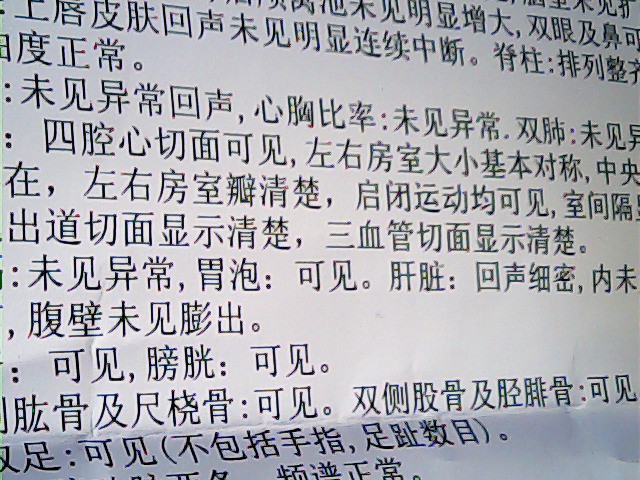 上唇皮肤回声未见明显连续中断。脊柱:排列整齐
度正常。
:未见异常回声,心胸比率:未见异常.双肺:未见异
:四腔心切面可见,左右房室大小基本对称,中央
在,左右房室瓣清楚,启闭运动均可见,室间隔
出道切面显示清楚,三血管切面显示清楚。
:未见异常,胃泡:可见。肝脏:回声细密,内未
,腹壁未见膨出。
:可见,膀胱:可见。
肱骨及尺桡骨:可见。双侧股骨及胫腓骨:可见
双足:可见(不包括手指,足趾数目)。
频谱正常。